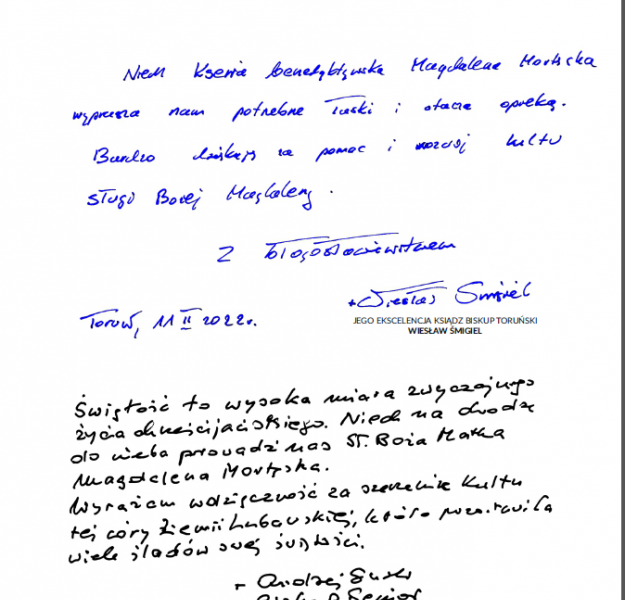 Niech Ksenia benedyktynska Magdalena Mortęska
wyprasza nam potrzebne łaski i otacza opieką.
Bardzo dziękuję za pomoc i rozwój kultu
sługi Bożej Magdaleny.
Z błogosławieństwem
+Wiesław Śmigiel
Toruń, 11 II 2022 r.
JEGO EKSCELENCJA KSIĄDZ BISKUP TORUŃSKI
WIESŁAW ŚMIGIEL
Świętość to wysoka miara zwyczajnego
życia chrześcijańskiego. Niech na drodze
do nieba prowadzi nas St. Boża Matka
Magdalena Mortęska.
Wyrażam wdzięczność za szerzenie kultu
tej córy Ziemi Lubawskiej, która pozostawiła
wiele śladów swej świętości.
+ Andrzej Suski
Biskup Senior